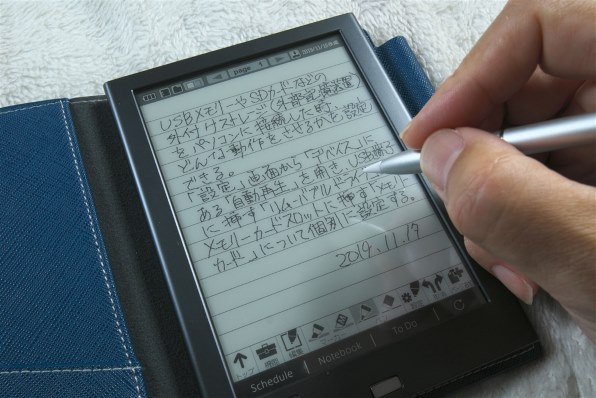 page
USBメモリーやSDカードなどの
外付けストレージ(外部記憶装置)
をパソコンに接続した時、
どんな動作をさせるかも設定
できる。
「設定」画面から「デバイス」に
ある「自動再生」を開き、USB端子
に挿す「リムーバブルドライ
メモリーカードスロットに挿す「メモリ
カード」について個別に設定する。
2019.11.17
Schedule Notebook To Do